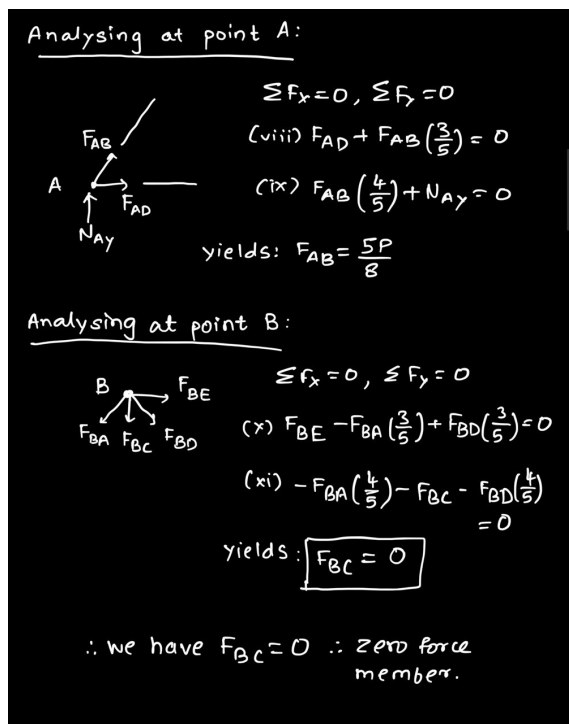 Analysing at point A:
ΣFx=0, ΣFy=0
(viii) FAD + FAB(3/5) = 0
FAB
A
FAD
NAY
(ix) FAB(4/5) + NAY = 0
yields: FAB = 5P/8
Analysing at point B:
ΣFx=0, ΣFy=0
B
FBE
FBA FBC FBD
(x) FBE - FBA(3/5) + FBD(3/5) = 0
(xi) - FBA(4/5) - FBC - FBD(4/5)
= 0
yields: FBC = 0
∴ we have FBC = 0 ∴ zero force
member.